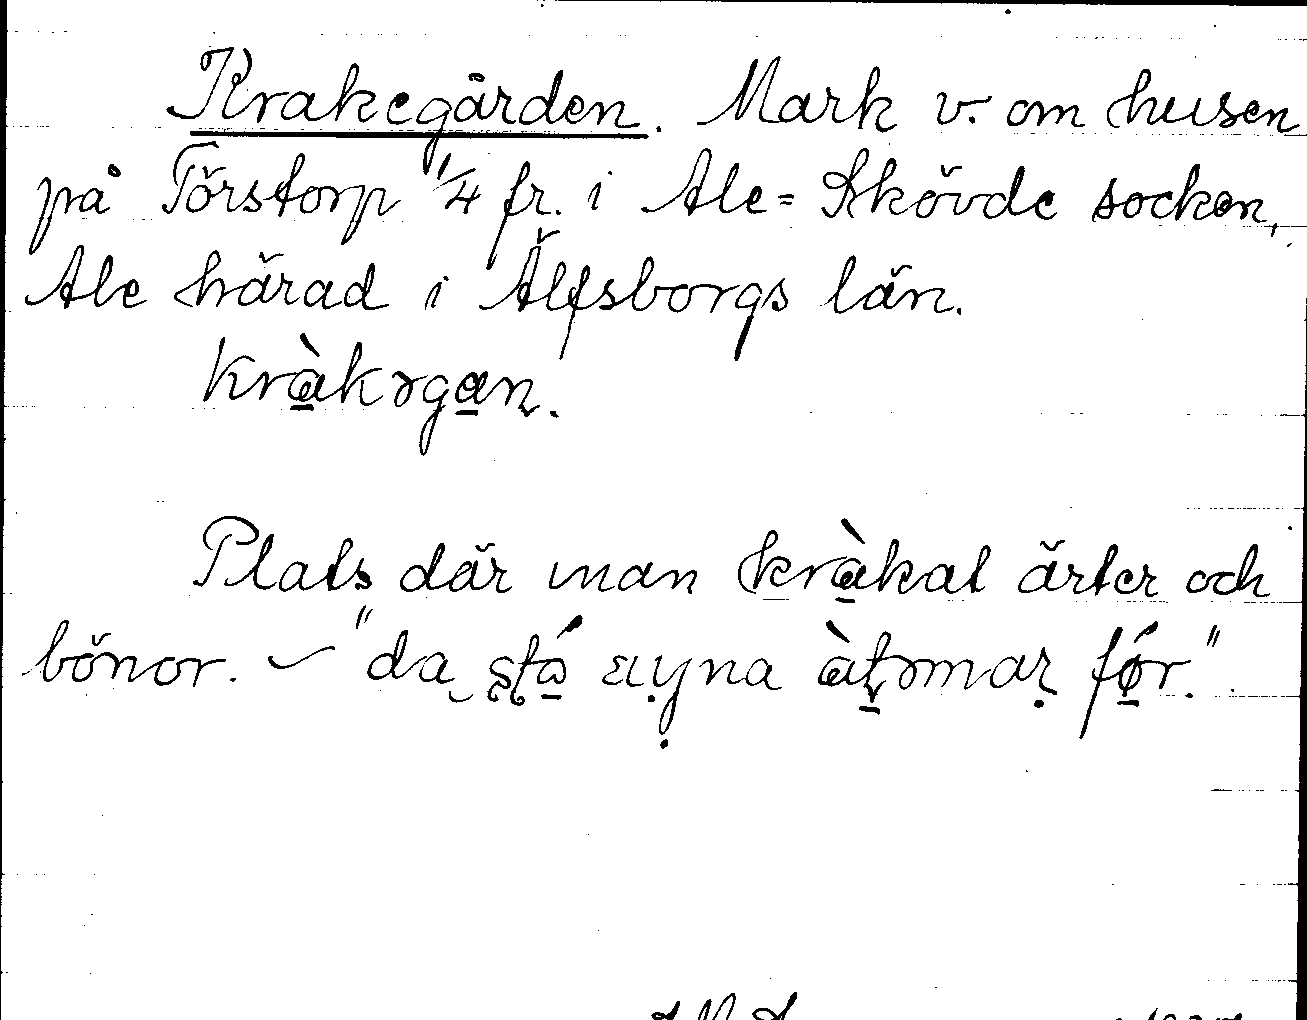 Krakegården. Mark v. om husen
på Törstorp 1/4 fr. i Ale-Skövde socken,
Ale härad i Älfsborgs län.
krà̱kəga̱n.
Plats där man krà̱kat ärter och
bönor. – "da stá̱ na
fǿ̱r."